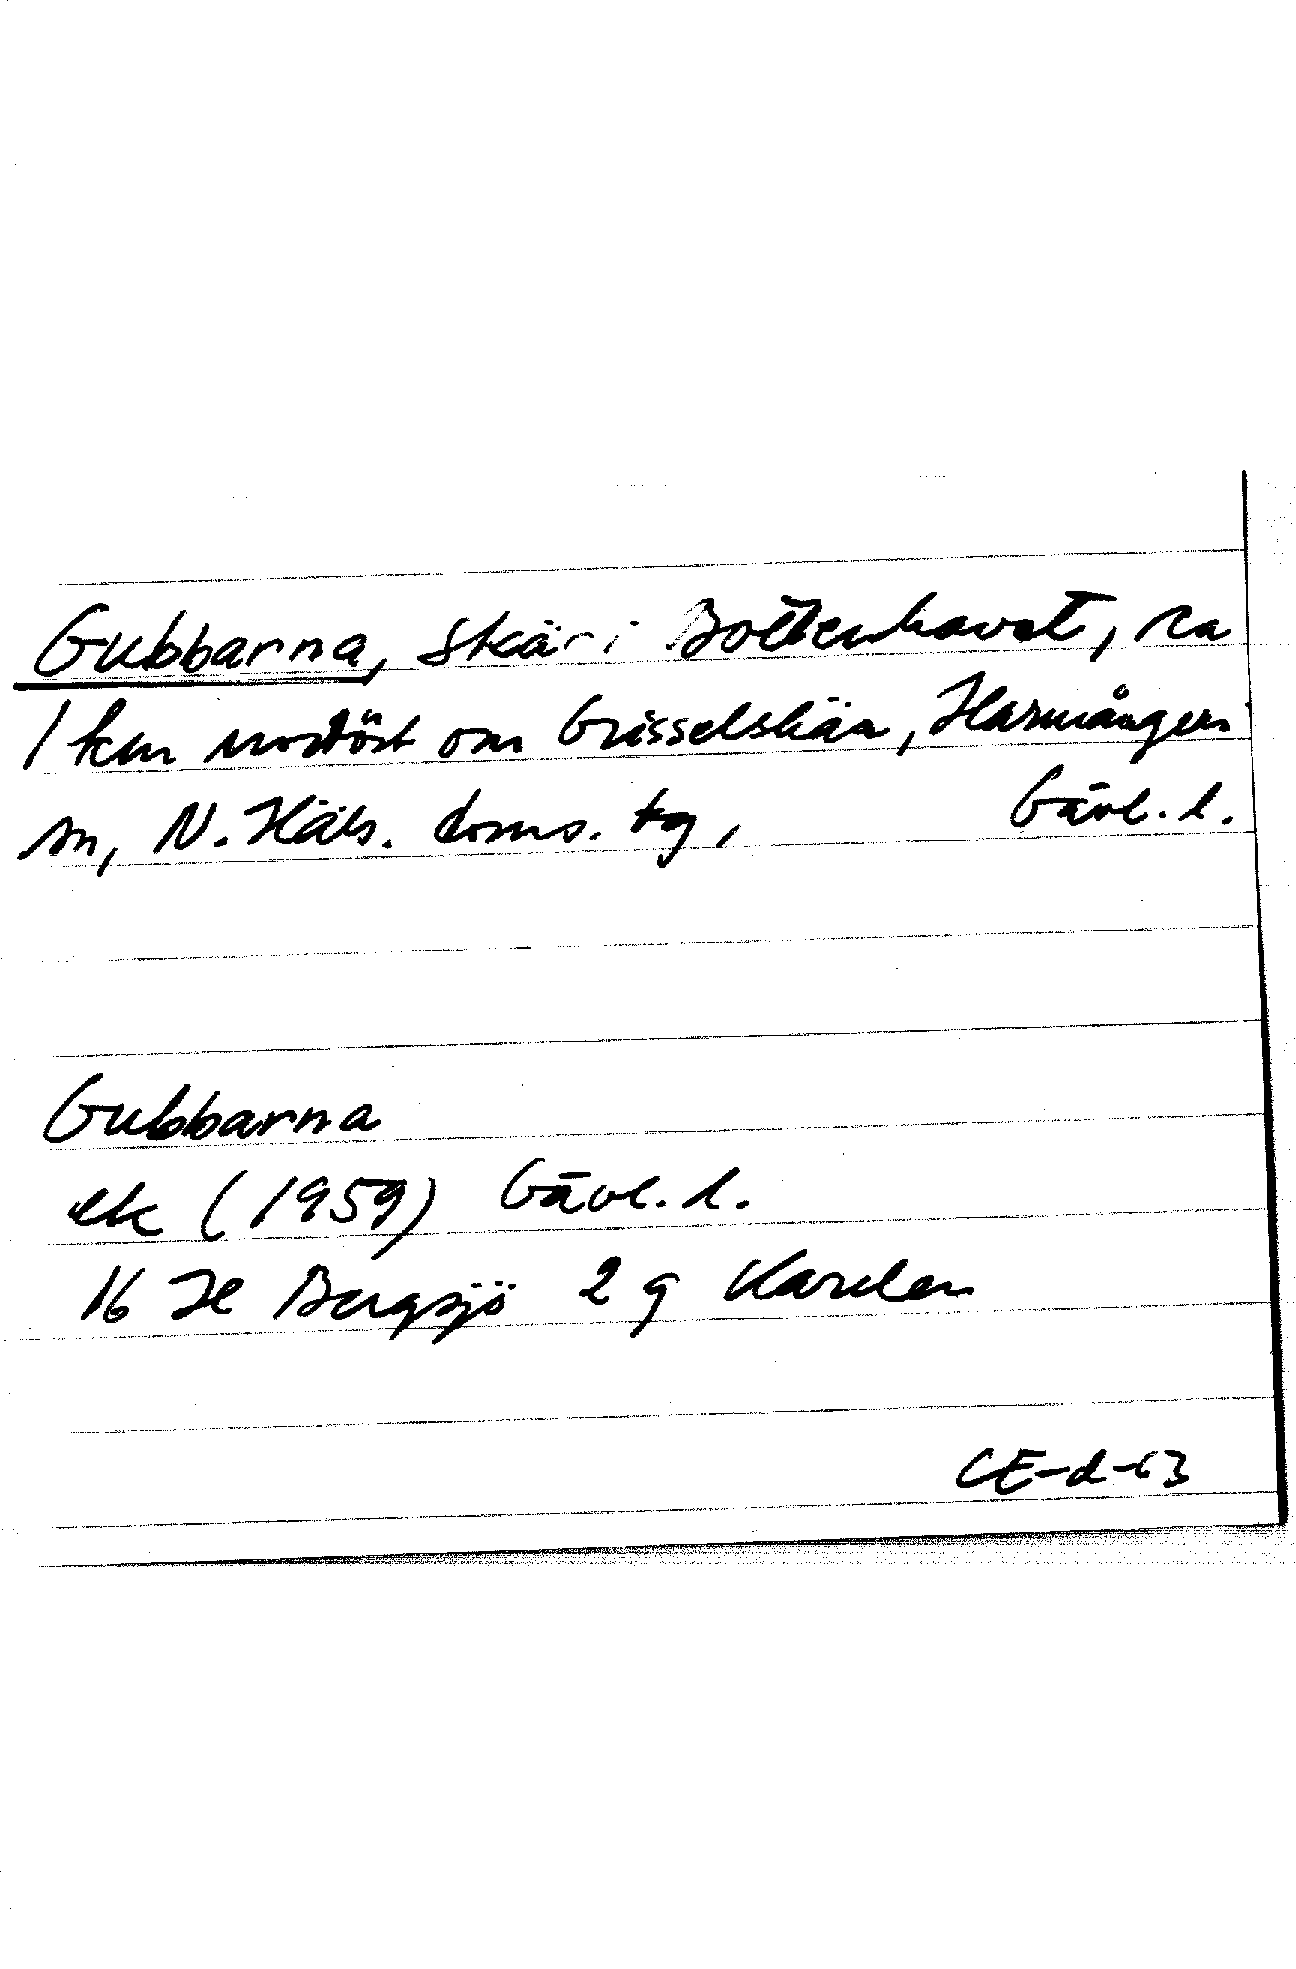 Gubbarna, skär i Bottenhavet, ca
1 km nordöst om Grisselskär, Harmånger
sn, N. Häls. doms. tg, Gävl. l.
Gubbarna
ek (1959) Gävl. l.
16 H Bergsjö 2 g Kartbl
CE-d-63